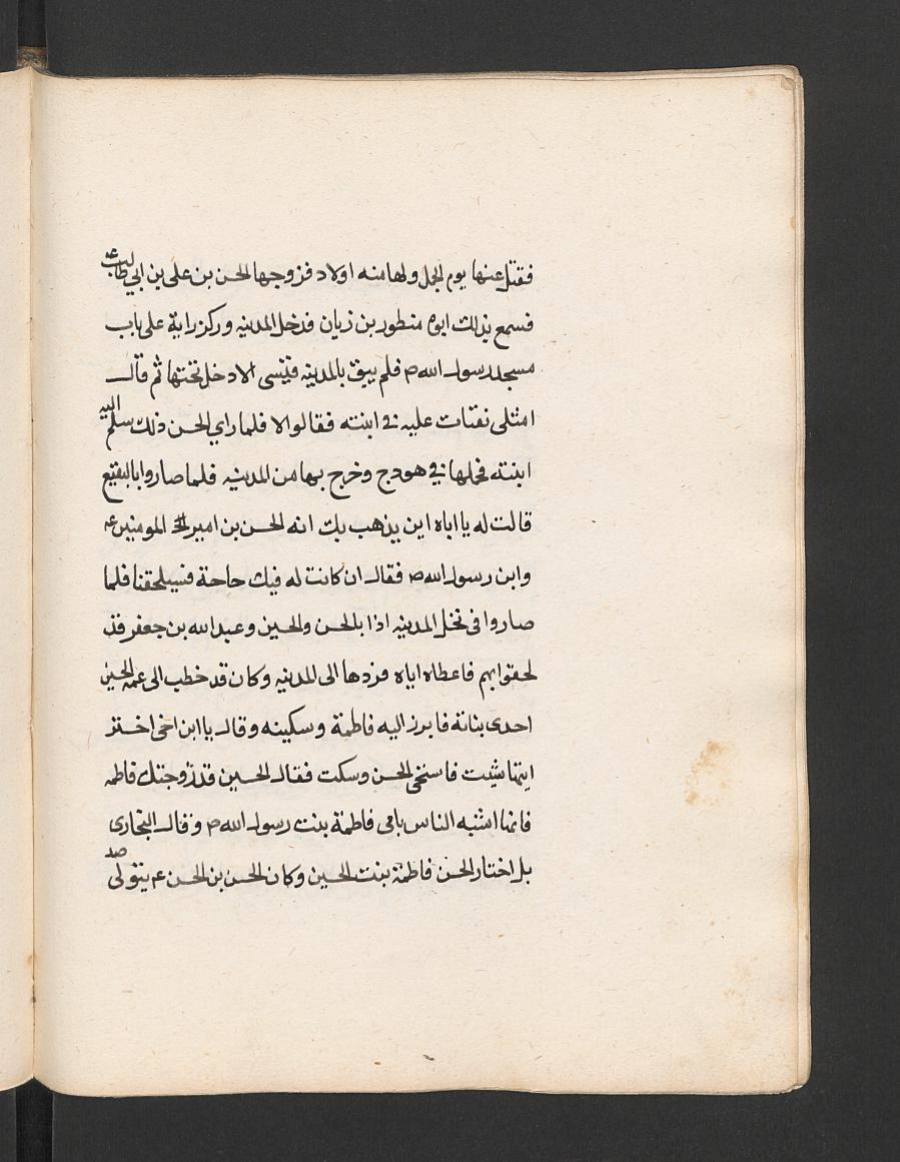 فقتل عنها يوم الجمل ولها منه اولاد فزوجها الحسن بن على بن ابي طالب ع
فسمع بذلك ابوه منظور بن زيان فدخل المدينه وركز راية على باب
مسجد رسول الله ص فلم يبق بالمدينه قيسى الا دخل تحتها ثم قال
امثلى نفتات عليه فى ابنته فقالوا لا فلما راي الحسن ذلك سلم اليه
ابنته فحملها في هودج وخرج بها من المدينه فلما صاروا بالبقيع
قالت له يا اباه اين يذهب بك انه الحسن بن امير المومنين ع
وابن رسول الله ص فقال ان كانت له فيك حاجة فسيلحقنا فلما
صاروا فى نخل المدينه اذا بالحسن والحسين وعبد الله بن جعفر قد
لحقوا بهم فاعطاه اياه فردها الى المدينه وكان قد خطب الى عمه الحسين
احدى بناته فابرز اليه فاطمة وسكينه وقال يا ابن اخى اختر
ايتهما شيت فاستحى الحسن وسكت فقال الحسين قد زوجتك فاطمه
فانها اشبه الناس بامى فاطمة بنت رسول الله ص وقال البخارى
بل اختار الحسن فاطمة بنت الحسين وكان الحسن بن الحسن ع يتولى صد